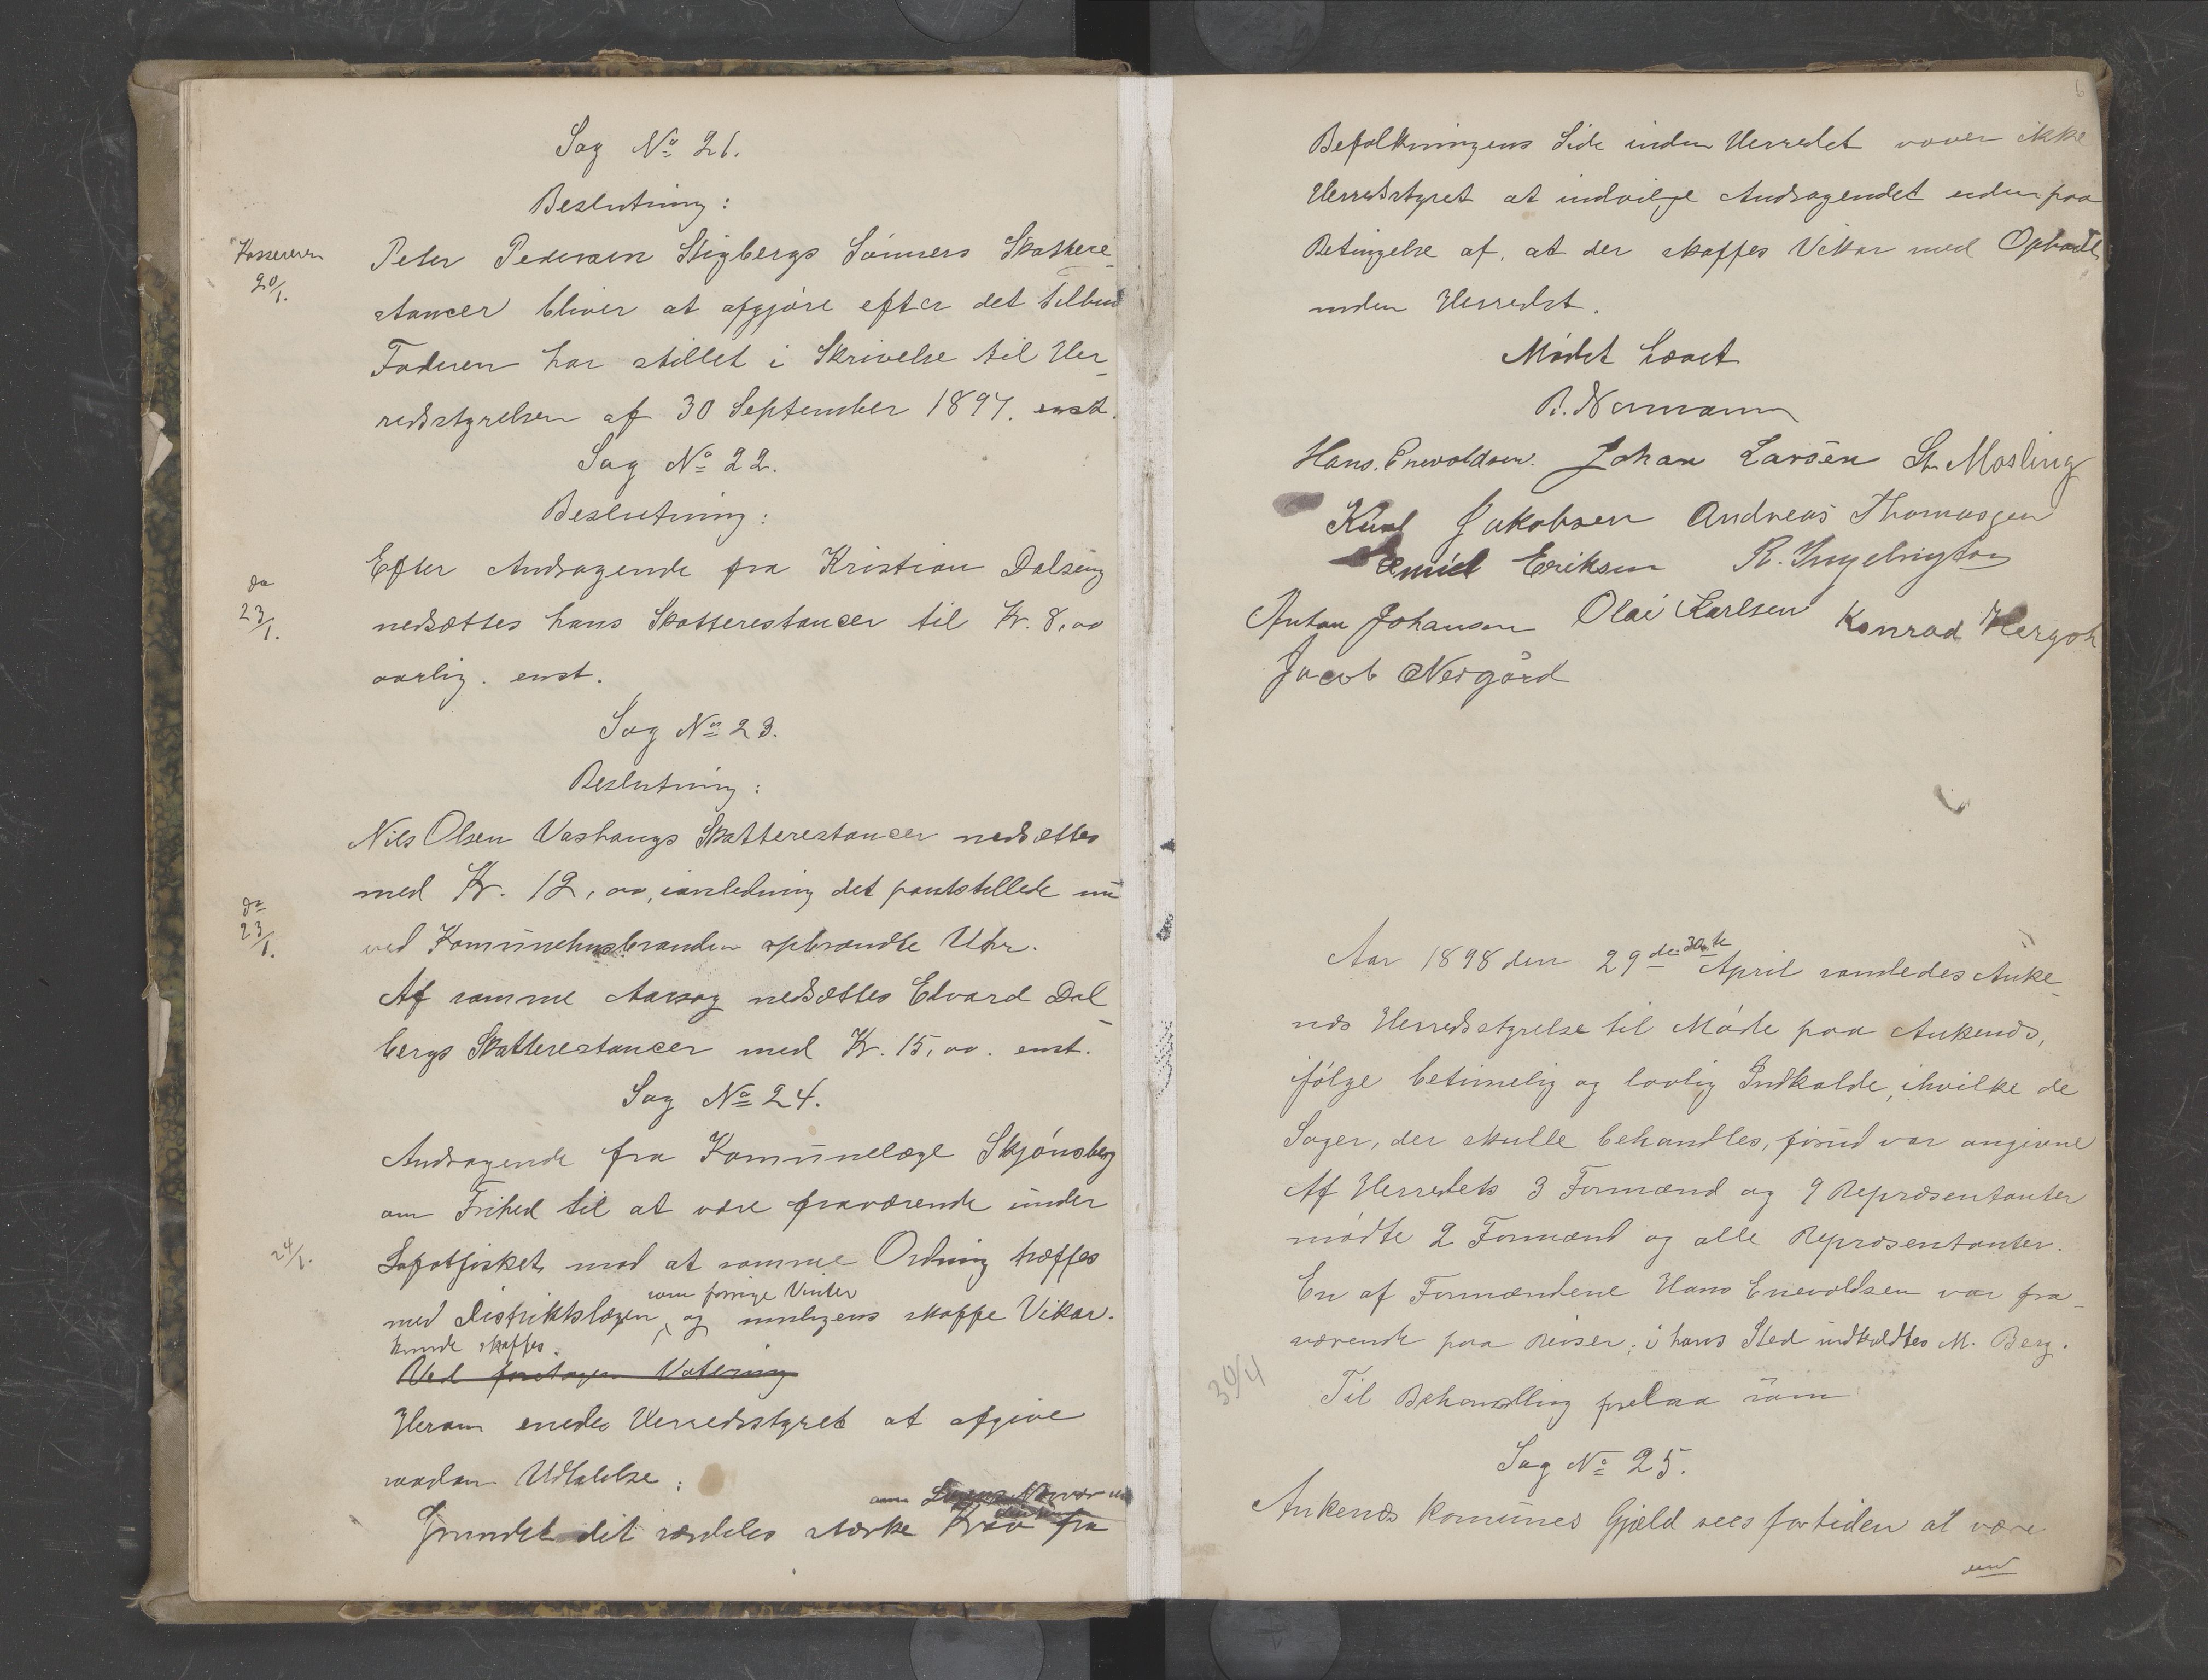 Sag No 21.
Beslutning:
Kassereren
20/1.
Peter Pedersen Stigbergs Sønners Skattere-
stancer bliver at afgjøre efter det Tilbud
Faderen har stillet i Skrivelse til Her-
redsstyrelsen af 30 September 1897. enst.
Sag No 22.
Beslutning:
do
23/1.
Efter Andragende fra Kristian Dalseng
nedsættes hans Skatterestancer til Kr. 8,00
aarlig. enst.
Sag No 23.
Beslutning:
Nils Olsen Vashaugs Skatterestancer nedsættes
med Kr. 12,00, ianledning det pantstillede nu
do
23/1.
ved Komunehusbranden opbrændte Uhr.
Af samme Aarsag nedsættes Edvard Dal-
bergs Skatterestancer med Kr. 15,00. enst.
Sag No 24.
Andragende fra Komunelæge Skjønsberg
om Frihed til at være fraværende under
24/1.
Lofotfisket, mod at samme Ordning træffes
som forrige Vinter
med Distriktslægen, og muligens skaffe Vikar.
kunde skaffes.
Ved foretagen Votering
Herom enedes Herredsstyret at afgive
saadan Udtalelse:
om
Grundet det særdeles stærke Krav fra
6
Befolkningens Side inden Herredet vover ikke
Herredsstyret at indvilge Andragendet uden paa
Betingelse af, at der skaffes Vikar med Ophold
inden Herredet.
Mødet hævet
B. Normann
Hans. Enevoldsen. Johan Larsen St. Mosling
Knut Jakobsen Andreas Thomassen
Emil Eriksen R. Ingebrigtsen
Anton Johansen Olai Karlsen Konrad
Jacob Neigård
Aar 1898 den 29de 30te April samledes Anke-
næs Herredsstyrelse til Møde paa Ankenæs,
ifølge betimelig og lovlig Indkalde, ihvilke de
Sager, der skulle behandles, forud var angivne
Af Herredets 3 Formænd og 9 Repræsentanter
mødte 2 Formænd og alle Repræsentanter.
En af Formændene Hans Enevoldsen var fra-
værende paa Reiser; i hans Sted indkaldtes M. Berg.
30/4
Til Behandling forelaa som
Sag No 25.
Ankenæs Komunes Gjæld sees for tiden at være